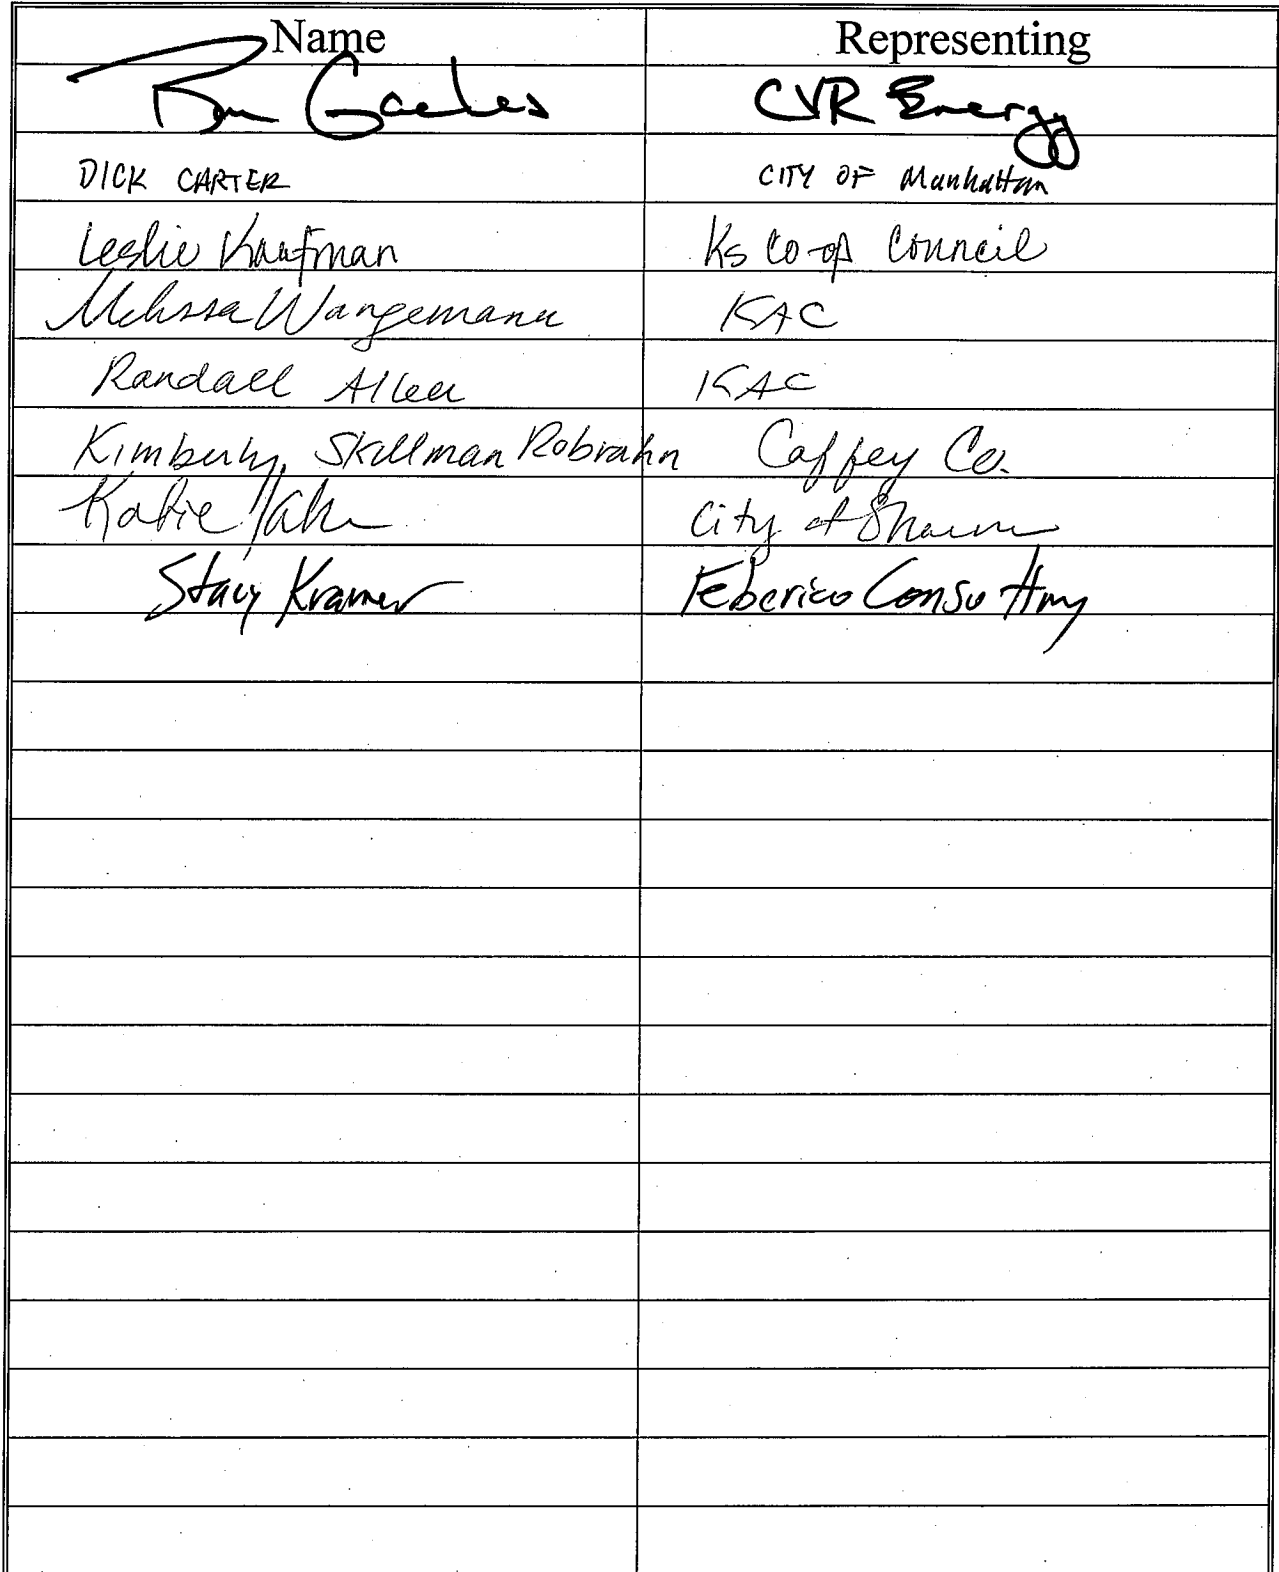 Name Representing
Gaches CVR Energy
DICK CARTER CITY OF Manhattan
Leslie Kaufman Ks Co-op Council
Melissa Wangemann KAC
Randall Allen KAC
Kimberly Skillman Robrahn Coffey Co.
Katie City of Shawnee
Stacy Kramer Federico Consulting